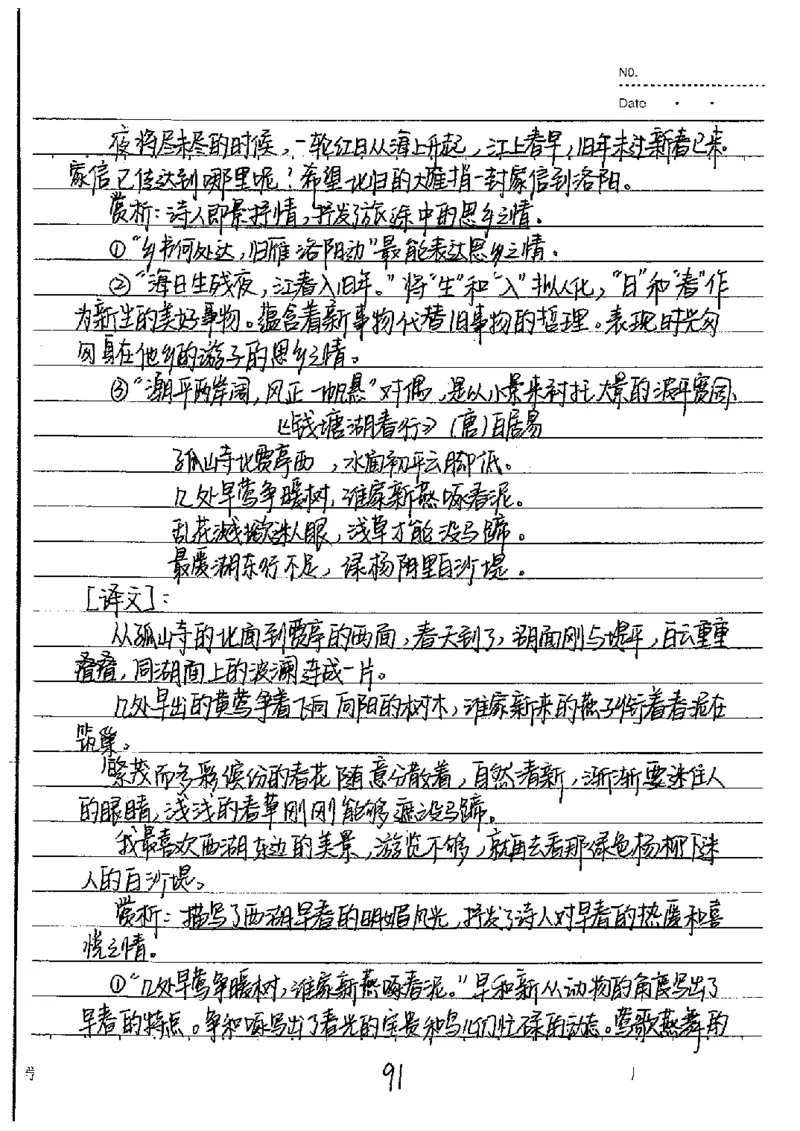 NO.
Date
夜将尽未尽的时候,一轮红日从海上升起,江上春早,旧年未过新春已来。
家信已传达到哪里呢?希望北归的大雁捎一封家信到洛阳。
赏析:诗人即景抒情,抒发了旅途中的思乡之情。
①“乡书何处达,归雁洛阳边”最能表达思乡之情。
②“海日生残夜,江春入旧年。”将“生”和“入”拟人化,“日”和“春”作
为新生的美好事物。蕴含着新事物代替旧事物的哲理。表现时光匆
匆身在他乡的游子的思乡之情。
③“潮平两岸阔,风正一帆悬”对偶,是以小景来衬托大景的波平宽阔、
《钱塘湖春行》(唐)白居易
孤山寺北贾亭西,水面初平云脚低。
几处早莺争暖树,谁家新燕啄春泥。
乱花渐欲迷人眼,浅草才能没马蹄。
最爱湖东行不足,绿杨阴里白沙堤。
[译文]:
从孤山寺的北面到贾亭的西面,春天到了,湖面刚与堤平,白云重重
叠叠,同湖面上的波澜连成一片。
几处早出的黄莺争着飞向向阳的树木,谁家新来的燕子衔着春泥在
筑巢。
繁茂而多彩缤纷的春花随意分散着,自然清新,渐渐要迷住人
的眼睛,浅浅的春草刚刚能够遮没马蹄。
我最喜欢西湖东边的美景,游览不够,就再去看那绿色杨柳下迷
人的白沙堤。
赏析:描写了西湖早春的明媚风光,抒发了诗人对早春的热爱和喜
悦之情。
①“几处早莺争暖树,谁家新燕啄春泥。”早和新从动物的角度写出了
早春的特点。争和啄写出了春光的宝贵和鸟儿们忙碌的动态。莺歌燕舞的
91